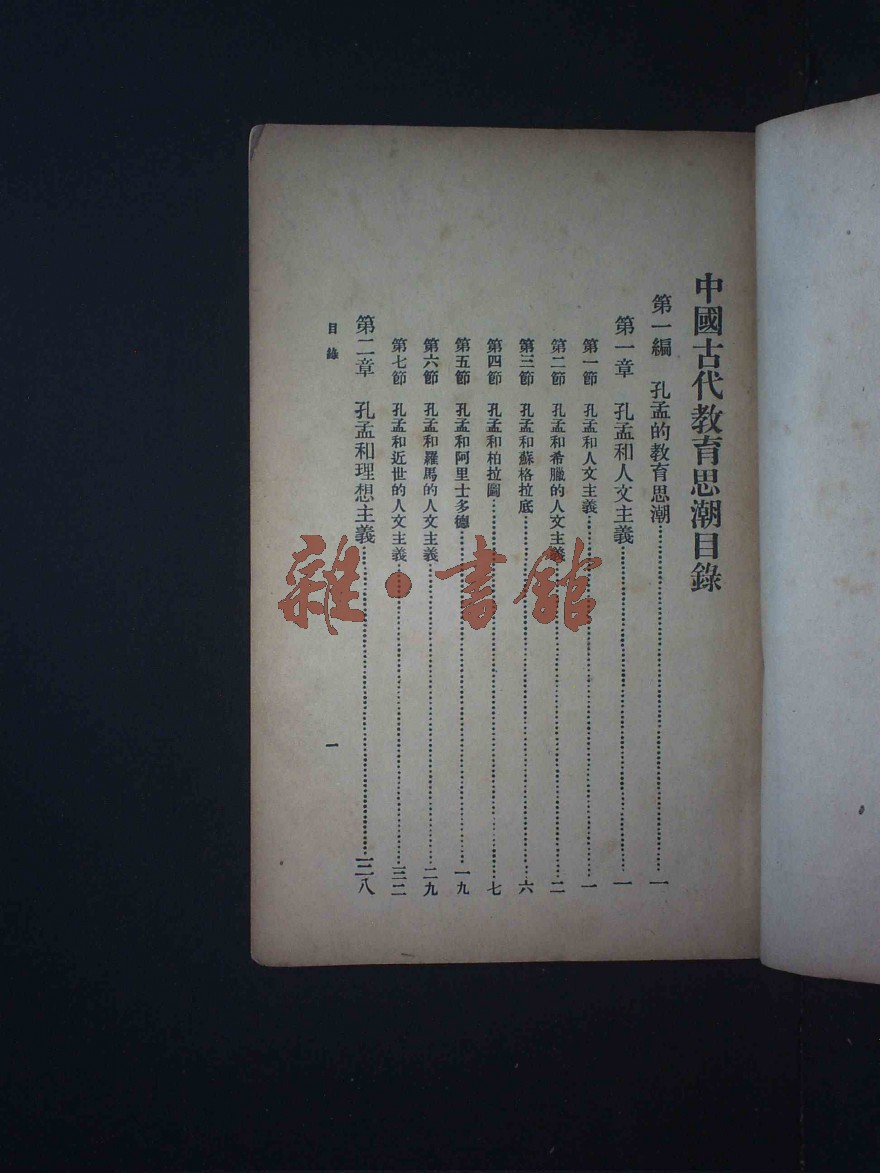 中國古代教育思潮目錄
第一編 孔孟的教育思潮……一
第一章 孔孟和人文主義……一
第一節 孔孟和人文主義……一
第二節 孔孟和希臘的人文主義……二
第三節 孔孟和蘇格拉底……六
第四節 孔孟和柏拉圖……七
第五節 孔孟和阿里士多德……一九
第六節 孔孟和羅馬的人文主義……二九
第七節 孔孟和近世的人文主義……三二
第二章 孔孟和理想主義……三八
目錄
一
雜·書館